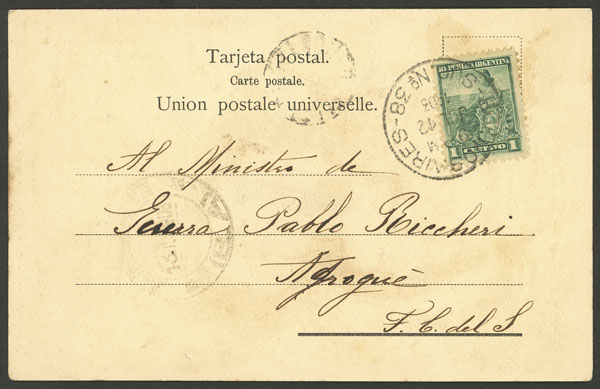 Tarjeta postal.
Carte postale.
Union postale universelle.
REPUBLICA ARGENTINA
1 CENTAVO 1
AIRES Nº 38-S
12
Al Ministro de
Guerra Pablo Riccheri
Adrogué
F. C. del S